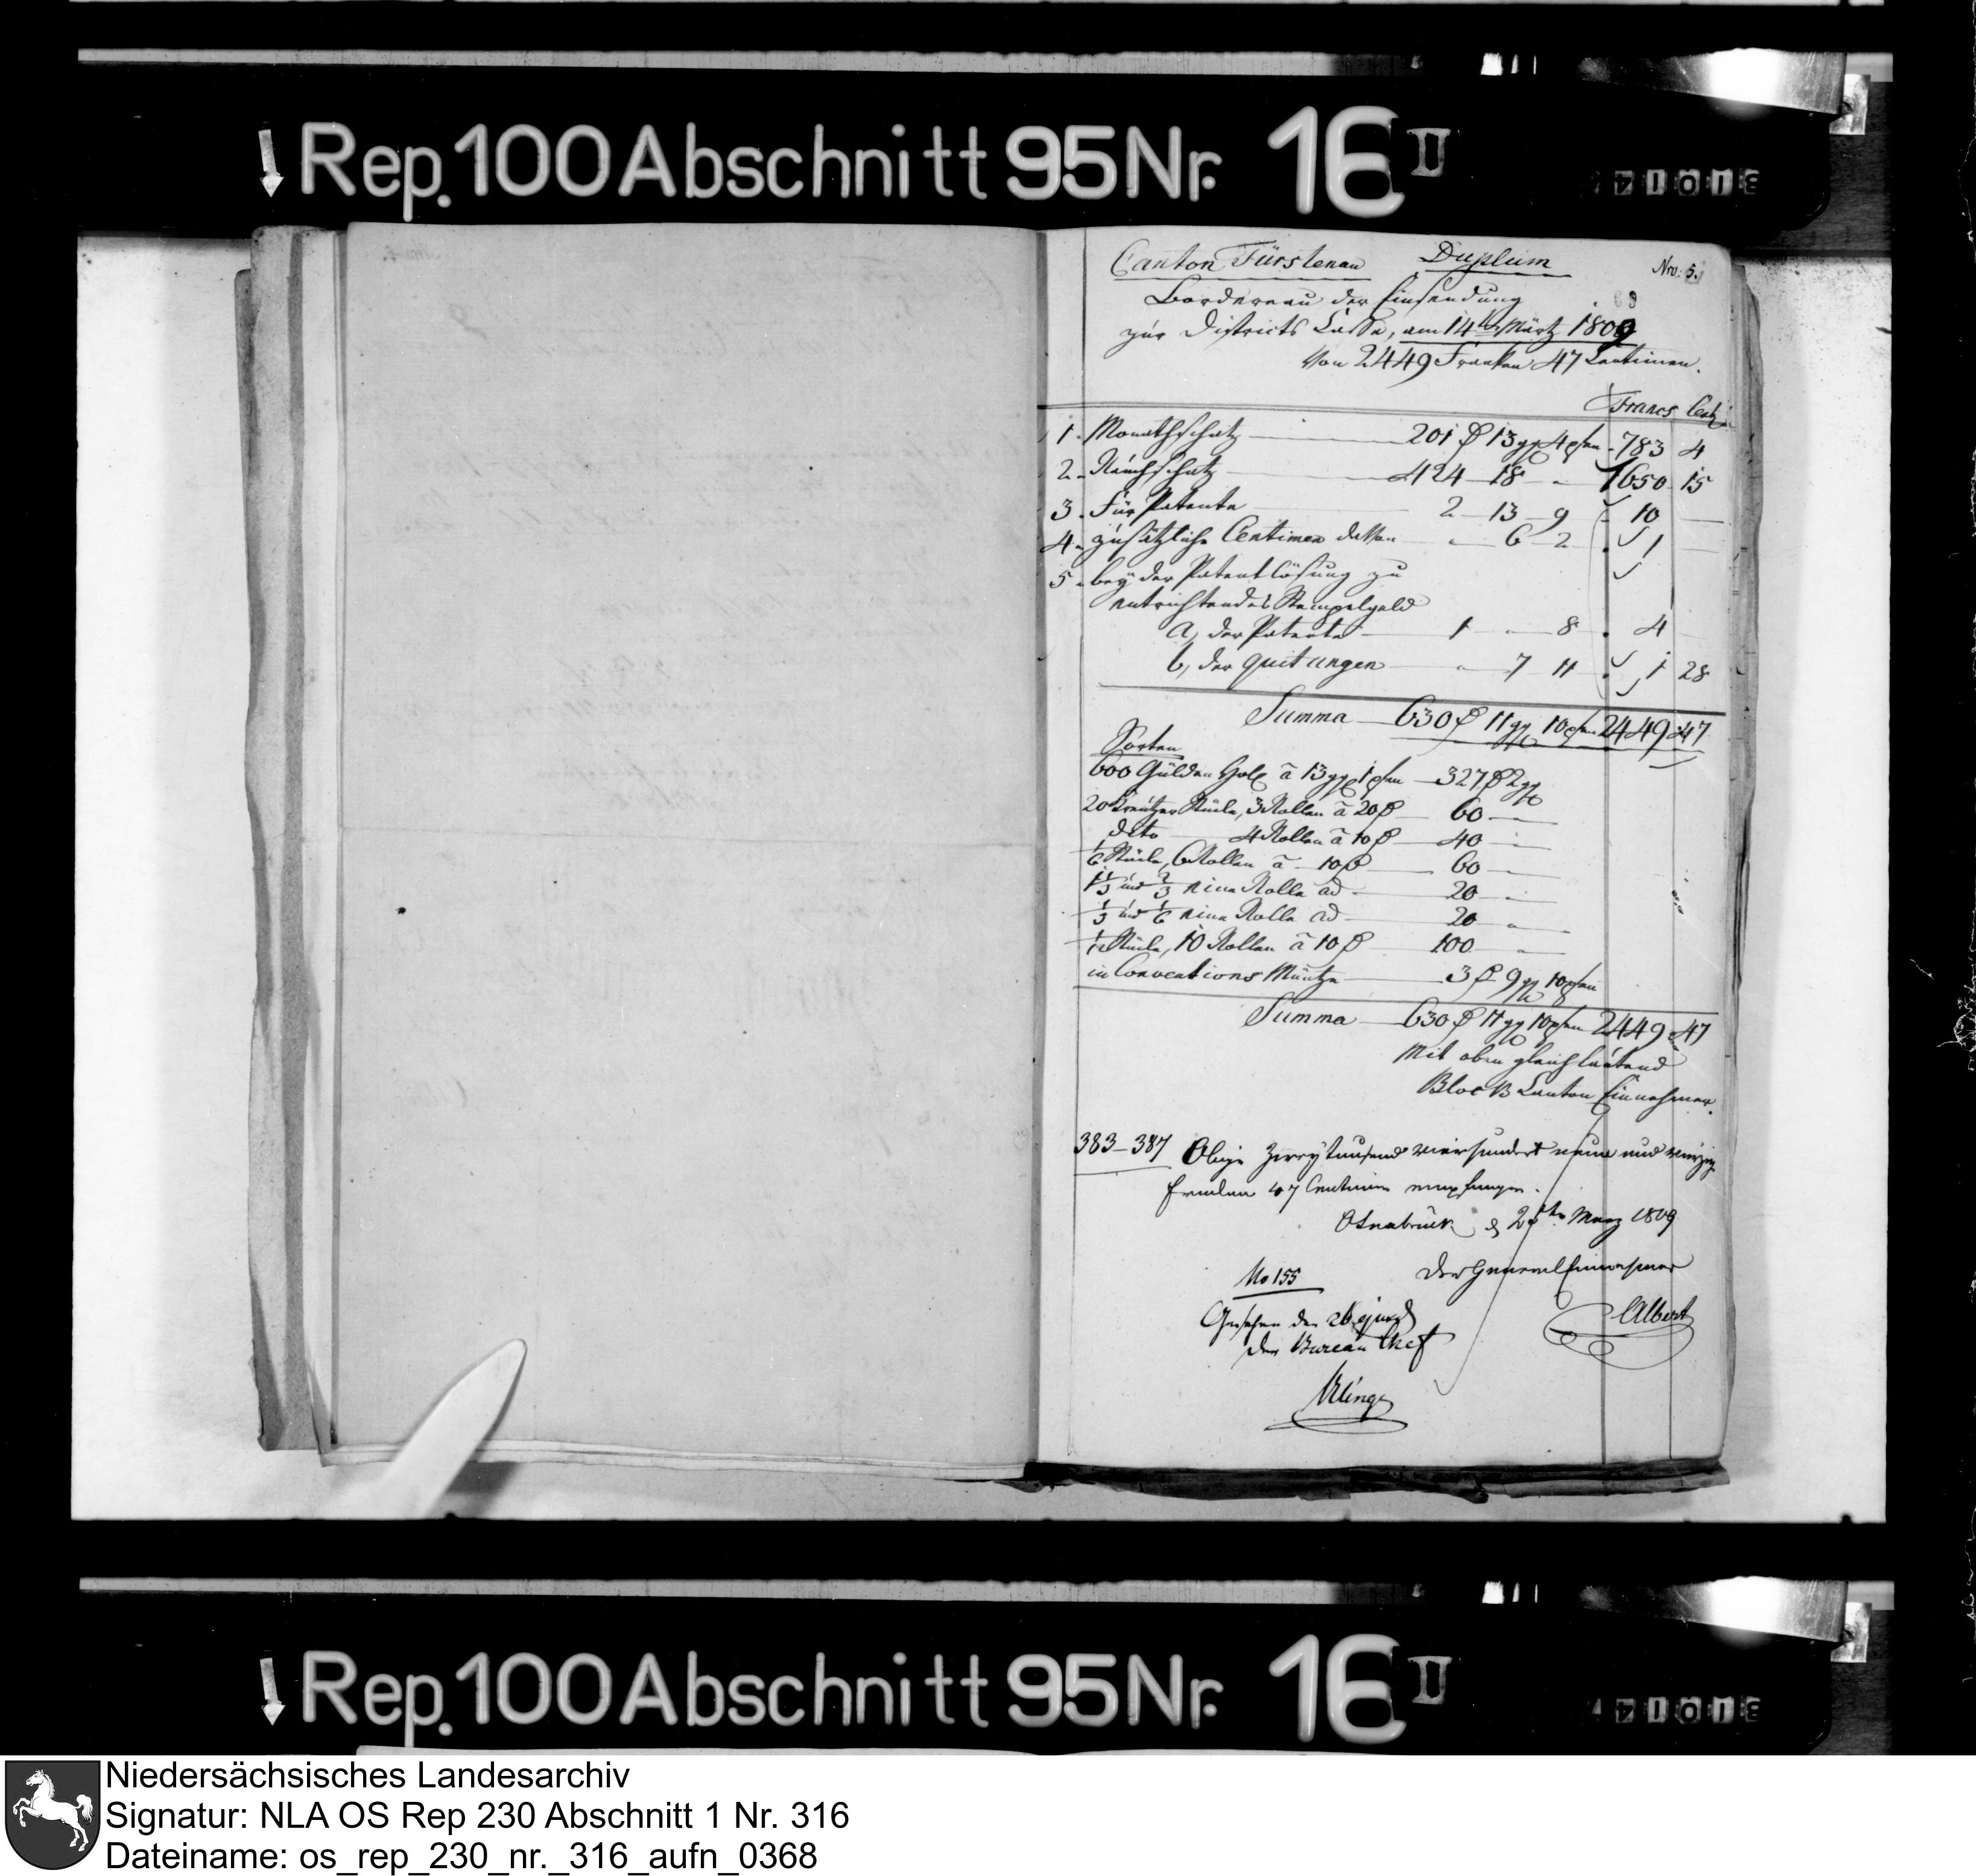 Rep. 100 Abschnitt 95 Nr. 16 II
Canton Fürstenau Duplum Nro: 5.
Bordereau der Einsendung
zur Districts Casse, am 14ten Märtz 1809
Von 2449 Franken 47 Centimen.
Francs Cent.
1. Monathschatz 201 ₰ 13 ggl 4 pfen 783 4
2. Rauchschatz 424 18 " 1650 15
3. Für Patente 2 13 9 10
4. zusätzliche Centimen detten " 6 2 1
5. bey der Patentlösung zu
entrichtendes Stempelgeld
a, der Patente 1 " 8 4
b, der quitungen " 7 11 1 28
Summa 630 ₰ 11 gg 10 pfen 2449 47
Sorten
600 Gülden Holl à 13 gg 1 pfen 327 ₰ 2 gg
20 Kreutzer Stücke, 3 Rollen à 20 ₰ 60
dito 4 Rollen à 10 ₰ 40
1/6 Stücke, 6 Rollen à 10 ₰ 60
1/3 und 2/3 eine Rolle ad 20
1/3 und 1/6 eine Rolle ad 20
1/12 Stücke, 10 Rollen à 10 ₰ 100
in Conventions Müntze 3 ₰ 9 gg 10 pfen
Summa 630 ₰ 11 gg 10 pfen 2449 47
Mit oben gleichlautend
Block Canton Einnehmer.
383–387 Obige Zweytausend vierhundert neun und vierzig
franken 47 Centimen empfangen.
Osnabrück d März 1809
Der General Einnehmer
Albert
No 155
Gesehen den 26 ejusd
Der Bureau Chef
Kling
Rep. 100 Abschnitt 95 Nr. 16 II
Niedersächsisches Landesarchiv
Signatur: NLA OS Rep 230 Abschnitt 1 Nr. 316
Dateiname: os_rep_230_nr._316_aufn_0368